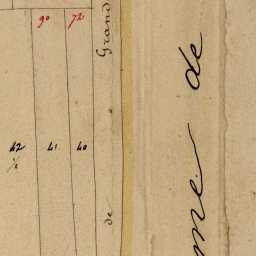 90 72
42 41 40
1/2
de Grand
me de